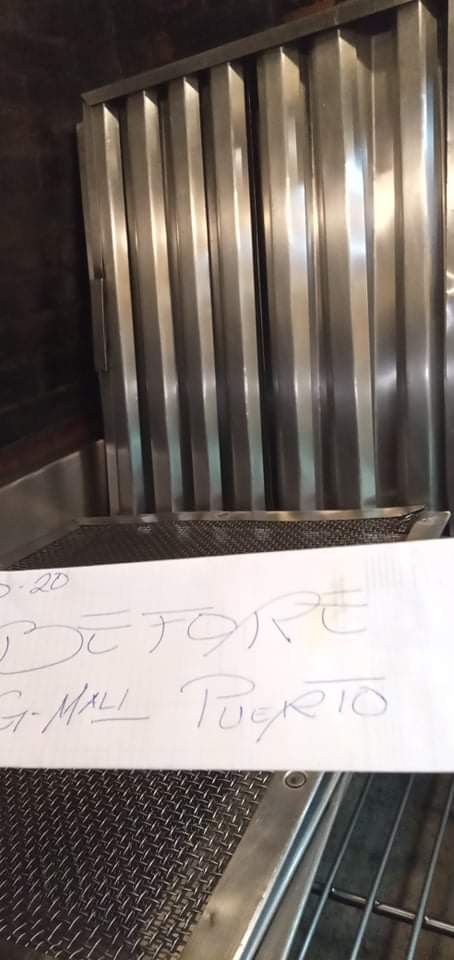 -20
BEFORE
G-MALI PUERTO